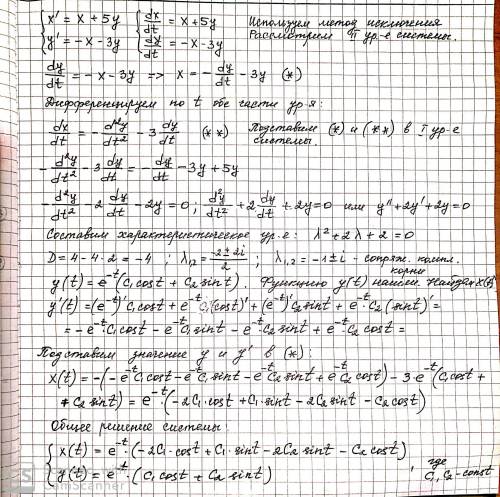 { x' = x + 5y { dx/dt = x + 5y Используем метод исключения
{ y' = -x - 3y { dy/dt = -x - 3y Рассмотрим II ур-е системы.
dy/dt = -x - 3y => x = -dy/dt - 3y (*)
Дифференцируем по t обе части ур-я:
dx/dt = -d²y/dt² - 3 dy/dt (**) Подставим (*) и (**) в I ур-е
системы.
-d²y/dt² - 3 dy/dt = -dy/dt - 3y + 5y
-d²y/dt² - 2 dy/dt - 2y = 0 ; d²y/dt² + 2 dy/dt + 2y = 0 или y'' + 2y' + 2y = 0
Составим характеристическое ур-е: λ² + 2λ + 2 = 0
D = 4 - 4·2 = -4 ; λ₁,₂ = (-2 ± 2i)/2 ; λ₁,₂ = -1 ± i - сопряж. компл.
корни
y(t) = e^(-t)(C₁cost + C₂sint). Функцию y(t) нашли. Найдём x(t)
y'(t) = (e^(-t))'C₁cost + e^(-t)C₁(cost)' + (e^(-t))'C₂sint + e^(-t)·C₂(sint)' =
= -e^(-t)·C₁cost - e^(-t)C₁sint - e^(-t)·C₂sint + e^(-t)·C₂cost =
Подставим значение y и y' в (*):
x(t) = -(-e^(-t)C₁cost - e^(-t)C₁sint - e^(-t)C₂sint + e^(-t)C₂cost) - 3·e^(-t)(C₁cost +
+ C₂sint) = e^(-t)·(-2C₁·cost + C₁·sint - 2C₂sint - C₂cost)
Общее решение системы:
{ x(t) = e^(-t)·(-2C₁·cost + C₁·sint - 2C₂sint - C₂cost)
{ y(t) = e^(-t)·(C₁cost + C₂sint) , где
C₁, C₂ - const
CamScanner